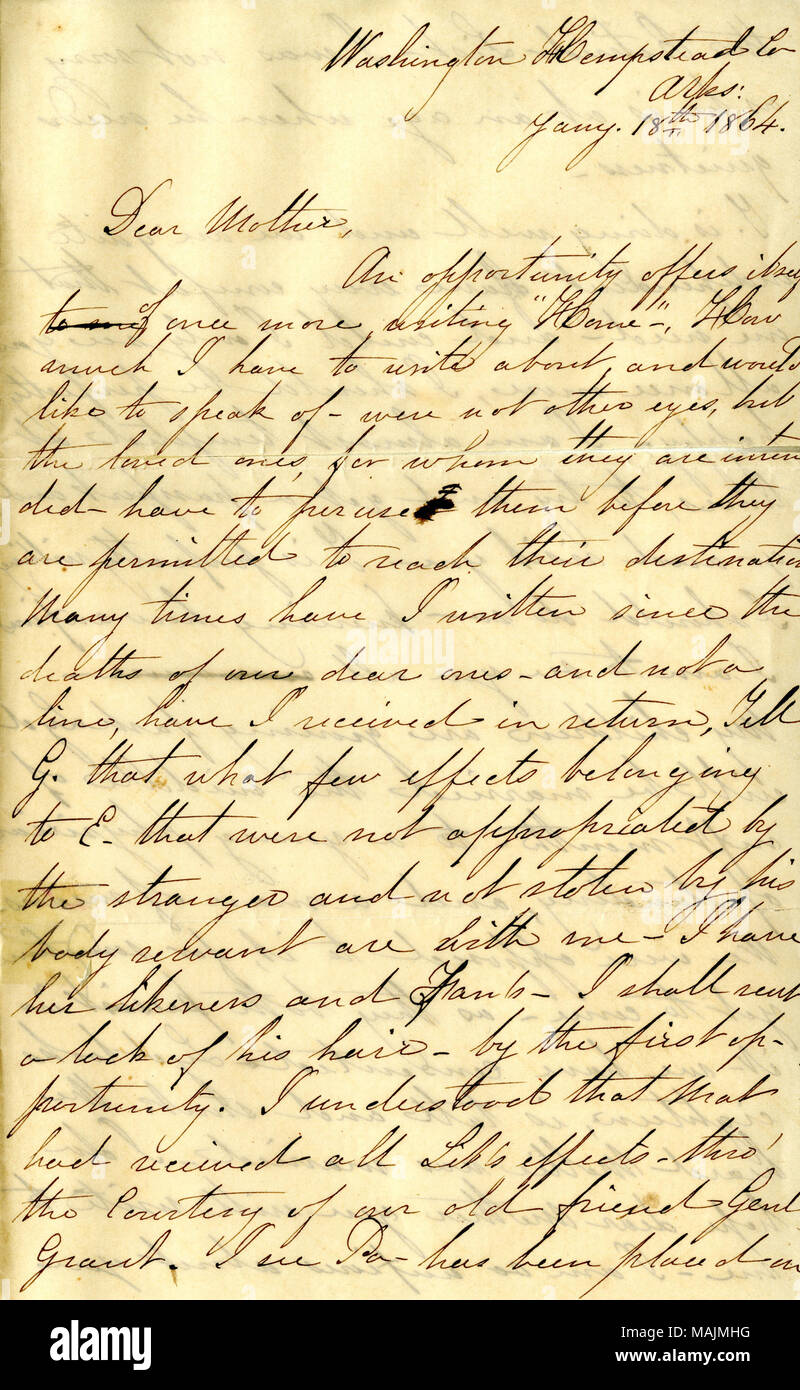 Washington Hempstead Co
Arks:
Jany. 18th 1864.
Dear Mother,
An opportunity offers itself
to me of once more writing "Home-", How
much I have to write about, and would
like to speak of - were not other eyes, but
the loved ones, for whom they are inten
ded - have to peruse them before they
are permitted to reach their destination
Many times have I written since the
deaths of our dear ones - and not a
line, have I received in return, Tell
G. that what few effects belonging
to E - that were not appropriated by
the stranger and not stolen by his
body servant are with me - I have
her likeness and Frank's - I shall send
a lock of his hair - by the first op-
portunity. I understood that Mat
had received all Leb's effects - thro'
the Courtesy of our old friend Genl
Grant. I see Pa - has been placed on
alamy
Image ID: MAJMHG
www.alamy.com